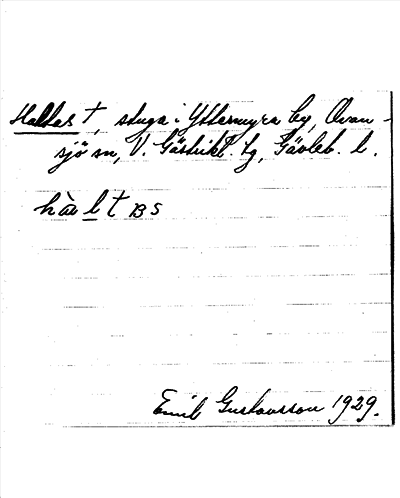 Haltas †, stuga i Yttermyra by, Ovan-
sjö sn, V. Gästrikl. tg, Gävleb. l.
hàltas
Emil Gustavsson 1929.